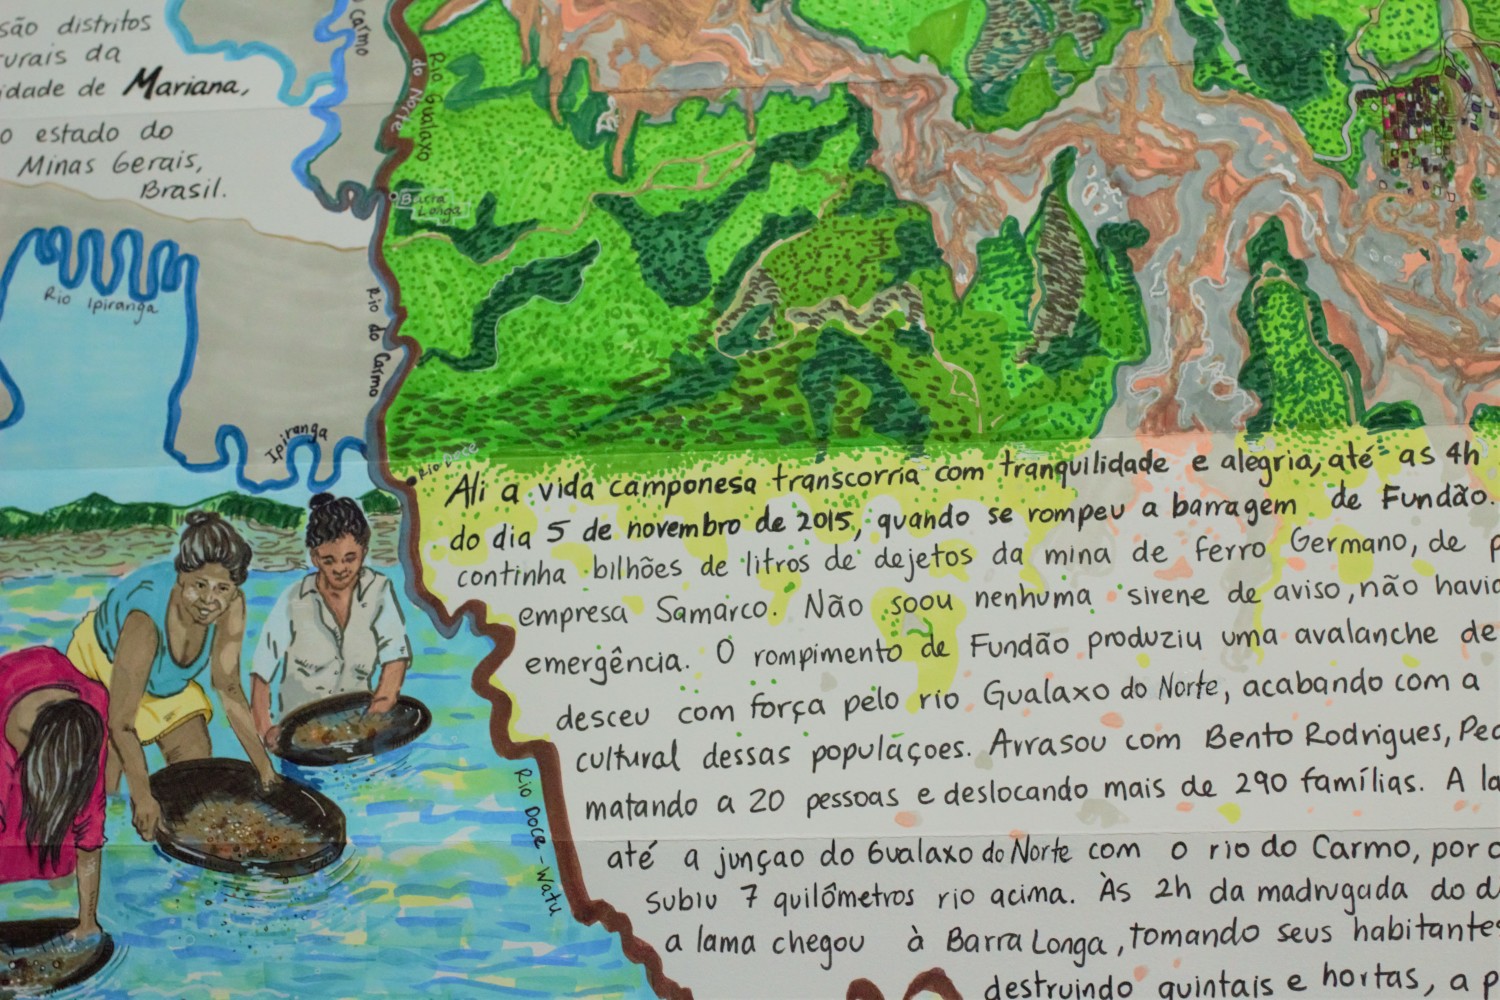 são distritos
rurais da
idade de Mariana,
o estado do
Minas Gerais,
Brasil.
Carmo
Rio Gualaxo
do Norte
Barra
Longa
Rio Ipiranga
Rio do Carmo
Ipiranga
Rio Doce
Ali a vida camponesa transcorria com tranquilidade e alegria, até as 4h
do dia 5 de novembro de 2015, quando se rompeu a barragem de Fundão.
continha bilhões de litros de dejetos da mina de ferro Germano, de p
empresa Samarco. Não soou nenhuma sirene de aviso, não havia
emergência. O rompimento de Fundão produziu uma avalanche de
desceu com força pelo rio Gualaxo do Norte, acabando com a
cultural dessas populaçoes. Arrasou com Bento Rodrigues, Pec
matando a 20 pessoas e deslocando mais de 290 famílias. A la
até a junçao do Gualaxo do Norte com o rio do Carmo, por o
subiu 7 quilômetros rio acima. Às 2h da madrugada do d
a lama chegou à Barra Longa, tomando seus habitantes
destruindo quintais e hortas, a p
Rio Doce - Watu